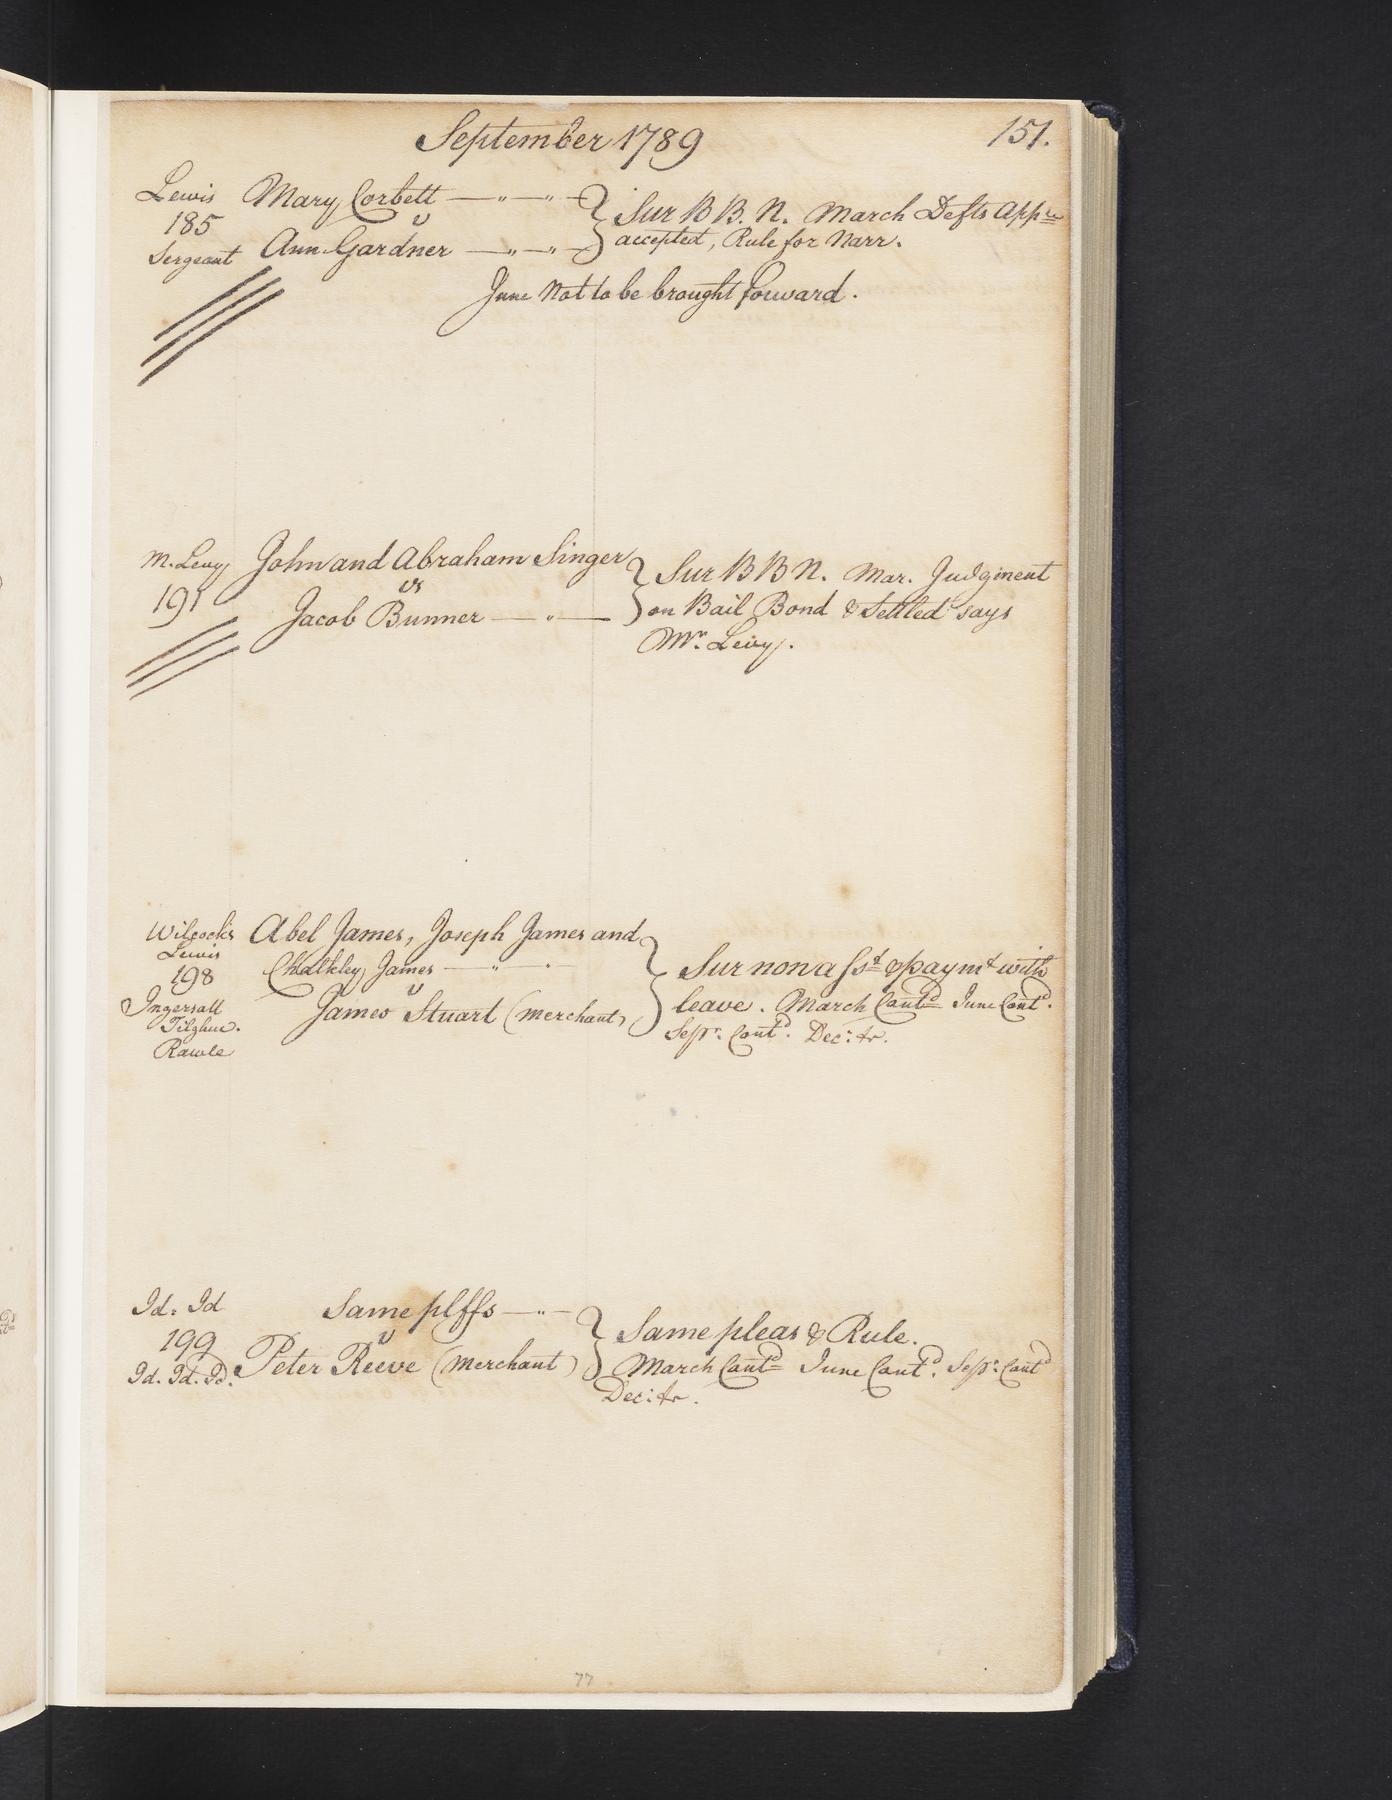 September 1789
151.
Lewis Mary Corbett
185 v
Sergeant Ann Gardner
Sur B B. N. March Defts App.ce
accepted, Rule for Narr.
June Not to be brought forward.
M. Levy John and Abraham Singer
191 vs
Jacob Bunner
Sur B B N. Mar. Judgment
on Bail Bond & Settled says
Mr. Levy.
Wilcocks Abel James, Joseph James and
Lewis Chalkley James
198 v
Ingersoll James Stuart (Merchant)
Tilghm.
Rawle
Sur non ass.t & paym.t with
leave. March Cont.d June Cont.d.
Sep.r Cont.d. Dec.r
Id. Id Same plffs
199 v
Id. Id. Id. Peter Reeve (Merchant)
Same pleas & Rule.
March Cont.d June Cont.d. Sep.r Cont.d
Dec.r
77